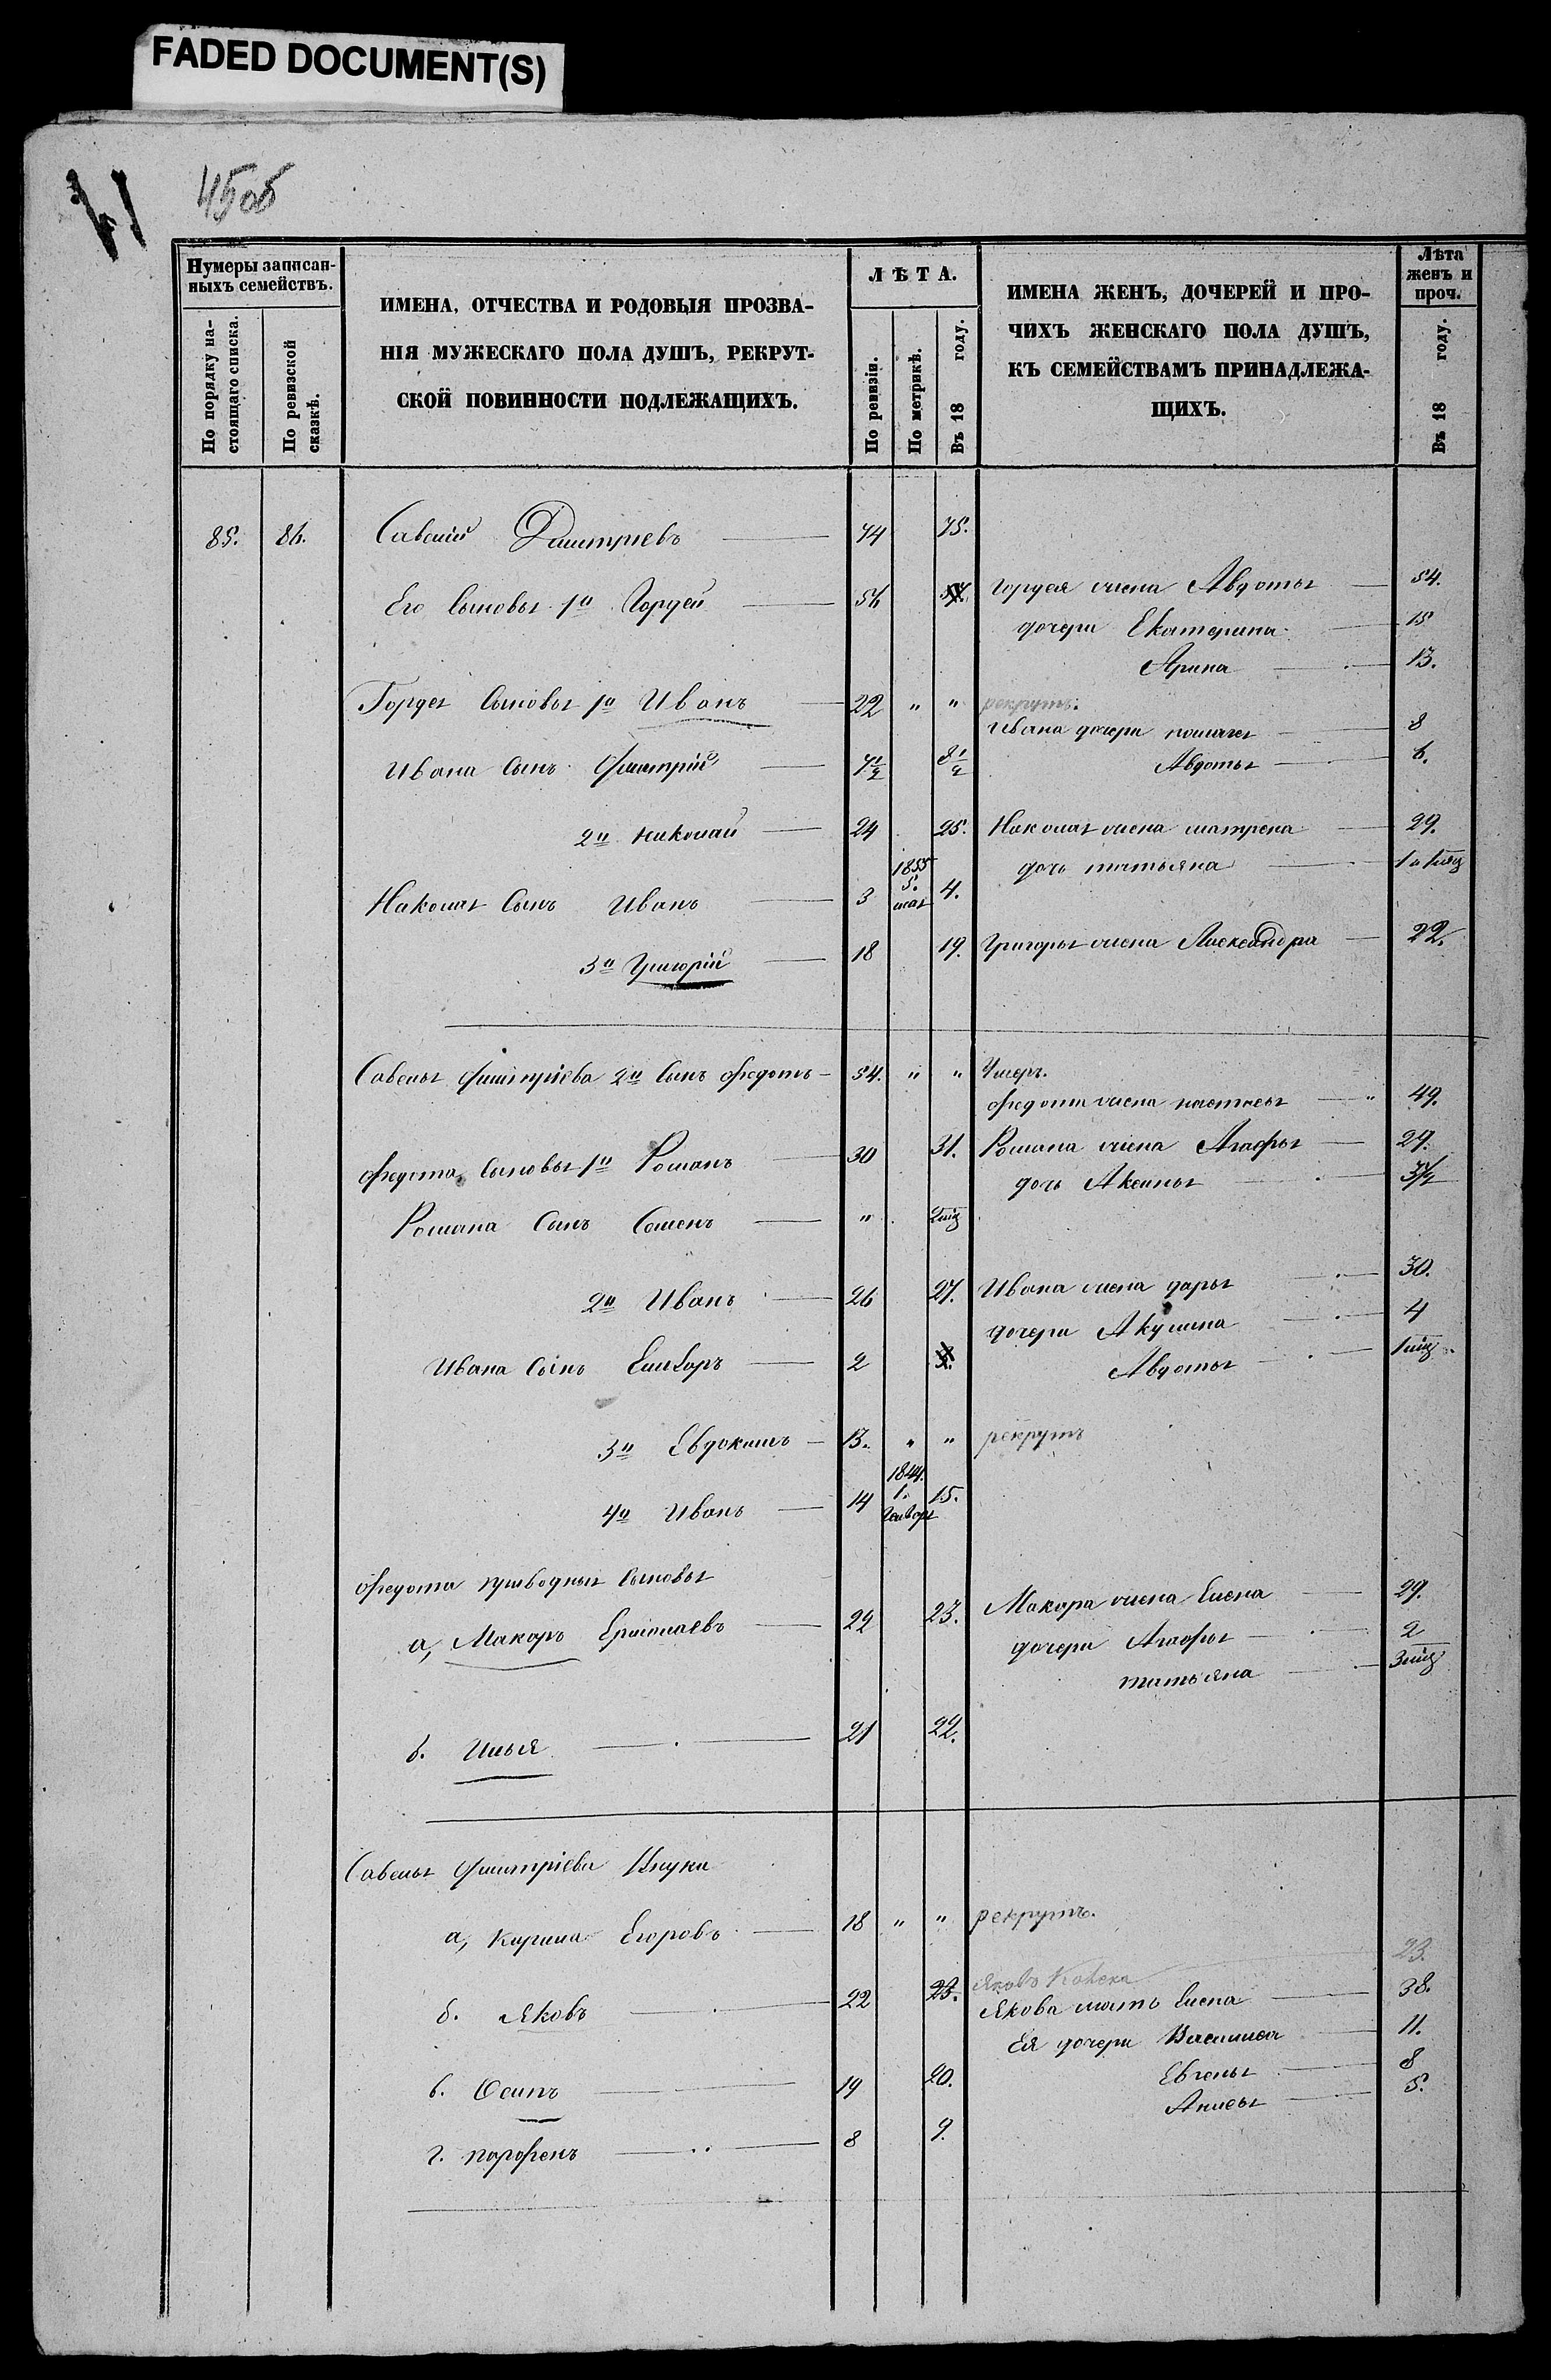 FADED DOCUMENT(S)
45об
Нумеры записан-
ныхъ семействъ.
По порядку на-
стоящаго списка.
По ревизской
сказкѣ.
ИМЕНА, ОТЧЕСТВА И РОДОВЫЯ ПРОЗВА-
НІЯ МУЖЕСКАГО ПОЛА ДУШЪ, РЕКРУТ-
СКОЙ ПОВИННОСТИ ПОДЛЕЖАЩИХЪ.
ЛѢТА.
По ревизіи.
По метрикѣ.
Въ 18 году.
ИМЕНА ЖЕНЪ, ДОЧЕРЕЙ И ПРО-
ЧИХЪ ЖЕНСКАГО ПОЛА ДУШЪ,
КЪ СЕМЕЙСТВАМЪ ПРИНАДЛЕЖА-
ЩИХЪ.
Лѣта
женъ и
проч.
Въ 18 году.
85. 86. Савелій Дмитріевъ 74 75.
Его Сыновья 1й Гордей 56 57. Гордея жена Авдотья 54.
дочери Екатерина 15
Арина 13.
Гордея Сыновья 1й Иванъ 22 " " рекрутъ.
Ивана дочери 8
Ивана Сынъ Дмитрій 7 1/2 8 1/2 Авдотья 6.
2й николай 24 25. Николая жена матрена 29.
дочь татьяна 1 и 1 мѣц
Николая Сынъ Иванъ 3 1855 5. мая 4.
3й Григорій 18 19. Григорья жена Александра 22.
Савелья Дмитріева 2й Сынъ Федотъ 54. " " Умеръ.
Федота жена настасья " 49.
Федота Сыновья 1й Романъ 30 31. Романа жена Агафья 29.
дочь Аксинья 3 1/2
Романа Сынъ Семенъ " 2 мѣц
2й Иванъ 26 27. Ивана жена дарья 30.
дочери Акулина 4
Ивана Сынъ 2 3. Авдотья 1 мѣц.
3й Евдокимъ 13. " " рекрутъ
4й Иванъ 14 1844. 1. Генваря 15.
Федота приводныя Сыновья
а, Макаръ Ермолаевъ 22 23. Макара жена Елена 29.
дочери Агафья 2
татьяна 3 мѣц
б. Илья 21 22.
Савелья Дмитріева Внуки
а, Кирила Егоровъ 18 " " рекрутъ.
Яковъ 23.
б. Яковъ 22 23. Якова мать Елена 38.
Ея дочери Василиса 11.
Евгенья 8
в. Осипъ 19 20. Анисья 5.
г. парфенъ 8 9.